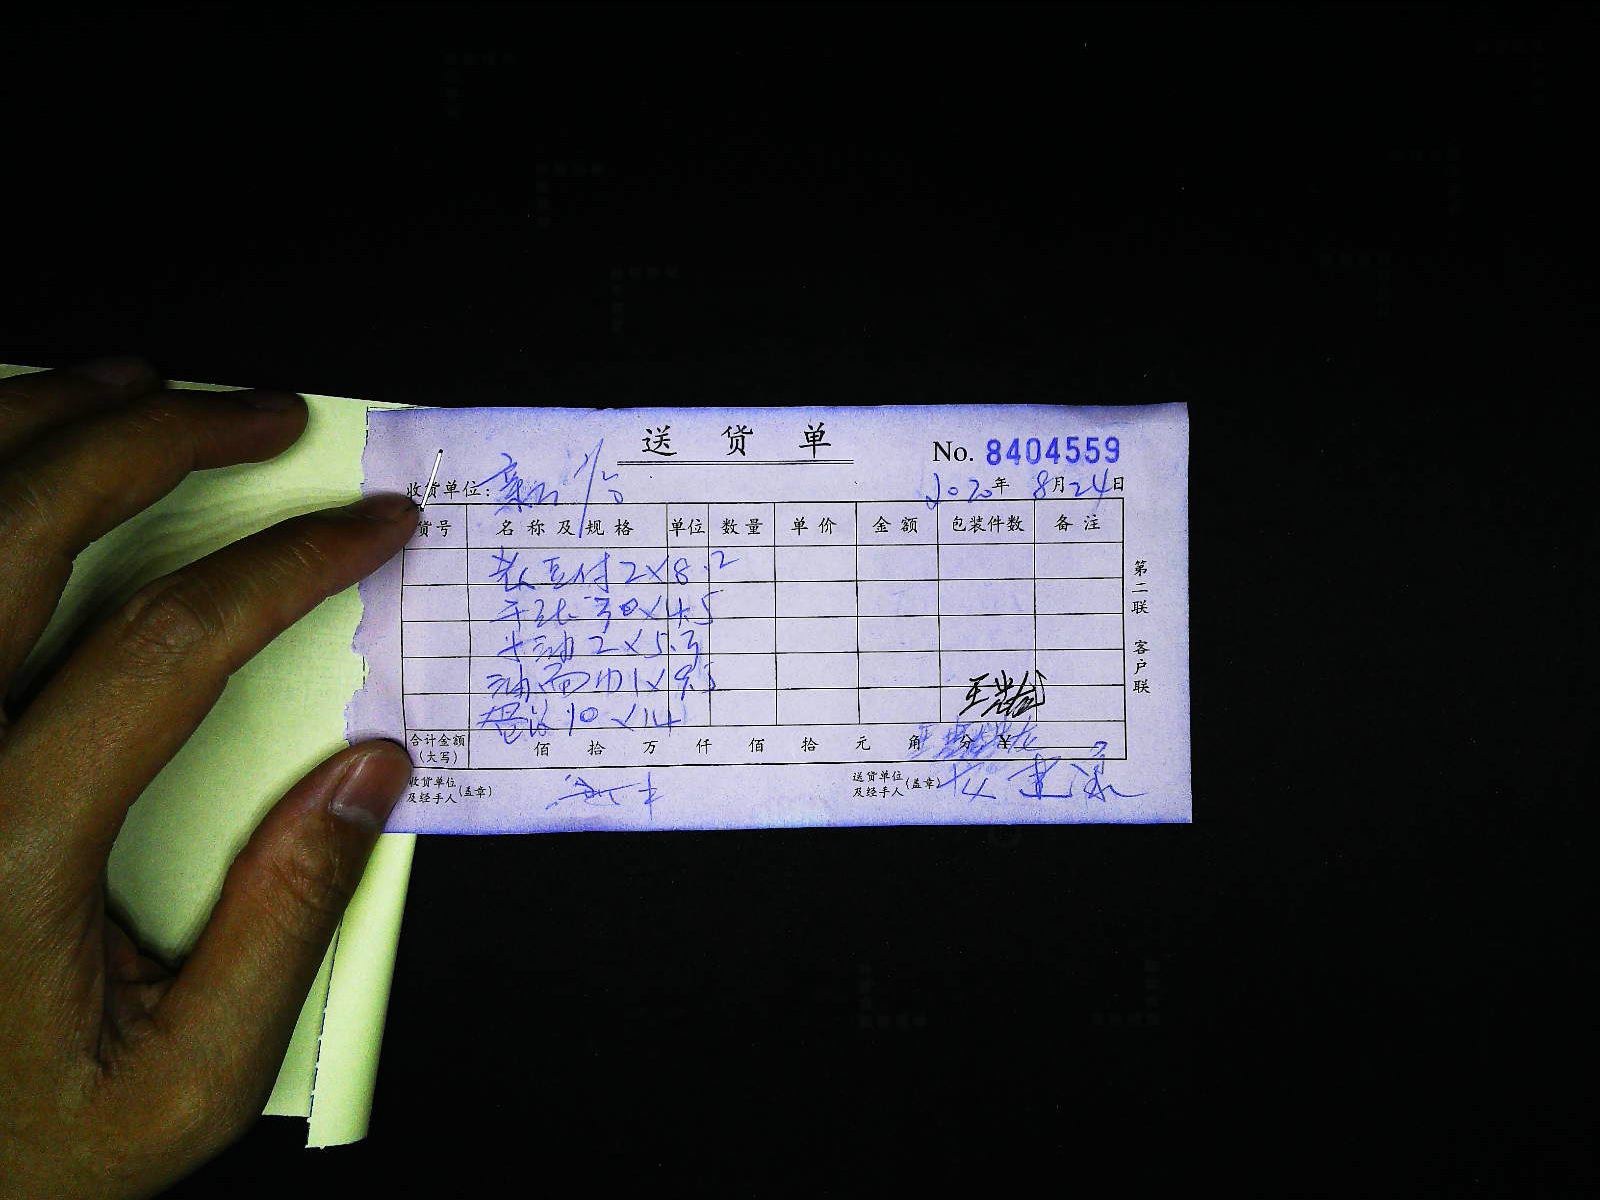 送货单
No. 8404559
收货单位:
2020年 8月24日
货号 名称及规格 单位 数量 单价 金额 包装件数 备注
老豆付 2×8.2
千张 30×4.5
半油 2×5.3
油面巾 1×9.5
10×14
合计金额(大写) 佰 拾 万 仟 佰 拾 元 角 分 ¥
收货单位及经手人(盖章)
送货单位及经手人(盖章)
第二联 客户联